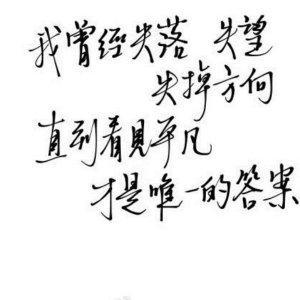 我曾经失落 失望
失掉方向
直到看見平凡
才是唯一的答案